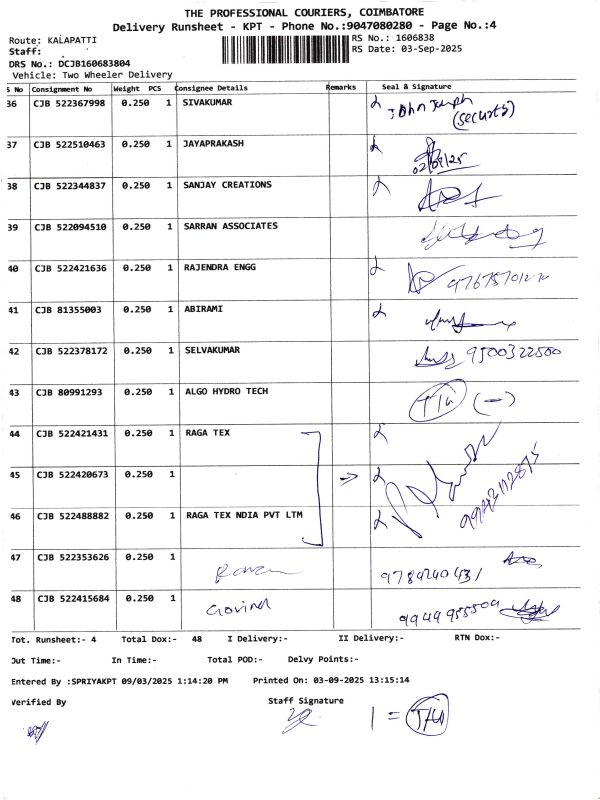 THE PROFESSIONAL COURIERS, COIMBATORE
Delivery Runsheet - KPT - Phone No.:9047080280 - Page No.:4
Route: KALAPATTI RS No.: 1606838
Staff: RS Date: 03-Sep-2025
DRS No.: DCJB160683804
Vehicle: Two Wheeler Delivery
S No Consignment No Weight PCS Consignee Details Remarks Seal & Signature
36 CJB 522367998 0.250 1 SIVAKUMAR John Joseph
(Security)
37 CJB 522510463 0.250 1 JAYAPRAKASH
02/09/25
38 CJB 522344837 0.250 1 SANJAY CREATIONS
39 CJB 522094510 0.250 1 SARRAN ASSOCIATES
40 CJB 522421636 0.250 1 RAJENDRA ENGG
41 CJB 81355003 0.250 1 ABIRAMI
42 CJB 522378172 0.250 1 SELVAKUMAR 9500322500
43 CJB 80991293 0.250 1 ALGO HYDRO TECH (-)
44 CJB 522421431 0.250 1 RAGA TEX
45 CJB 522420673 0.250 1
46 CJB 522488882 0.250 1 RAGA TEX NDIA PVT LTM
47 CJB 522353626 0.250 1
9789240431
48 CJB 522415684 0.250 1 Govind 9949955509
Tot. Runsheet:- 4 Total Dox:- 48 I Delivery:- II Delivery:- RTN Dox:-
Out Time:- In Time:- Total POD:- Delvy Points:-
Entered By :SPRIYAKPT 09/03/2025 1:14:20 PM Printed On: 03-09-2025 13:15:14
Verified By Staff Signature